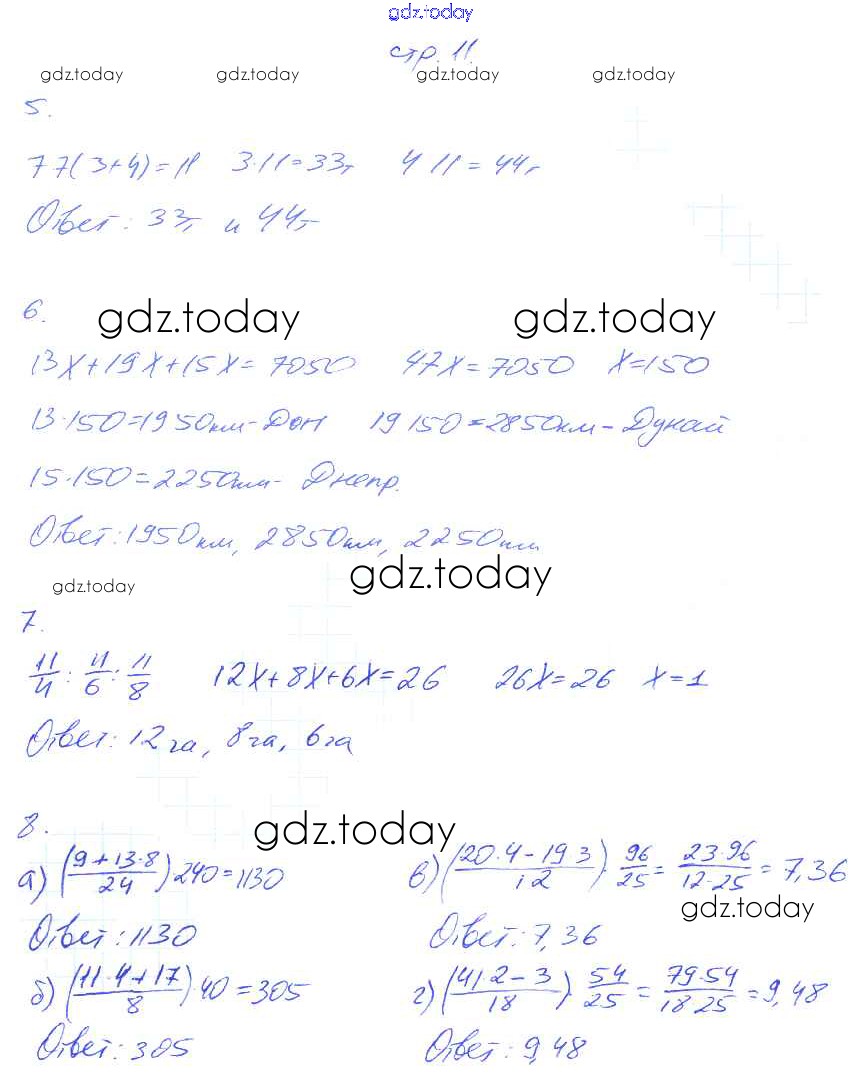 gdz.today
стр. 11.
gdz.today gdz.today gdz.today gdz.today
5.
77(3+4)=11 3·11=33г 4 11=44г
Ответ: 33г и 44г
6.
gdz.today gdz.today
13x+19x+15x=7050 47x=7050 x=150
13·150=1950км-Дон 19 150=2850км-Дунай
15·150=2250км-Днепр.
Ответ:1950км, 2850км, 2250км
gdz.today gdz.today
7.
11/4 : 11/6 : 11/8 12x+8x+6x=26 26x=26 x=1
Ответ: 12га, 8га, 6га
8.
gdz.today
а) ((9+13·8)/24) 240=1130 в) ((20·4-19 3)/12) · 96/25 = (23·96)/(12·25) = 7,36
gdz.today
Ответ:1130 Ответ:7,36
б) ((11·4+17)/8)·40=305 г) ((41·2-3)/18) · 54/25 = (79·54)/(18 25) = 9,48
Ответ:305 Ответ:9,48